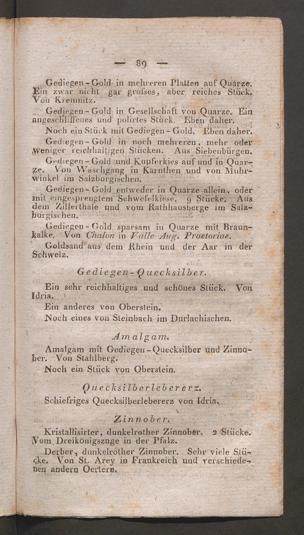 — 89 —
Gediegen-Gold in mehreren Platten auf Quarze.
Ein zwar nicht gar grosses, aber reiches Stück.
Von Kremnitz.
Gediegen-Gold in Gesellschaft von Quarze. Ein
angeschliffenes und polirtes Stück. Eben daher.
Noch ein Stück mit Gediegen-Gold. Eben daher.
Gediegen-Gold in noch mehreren, mehr oder
weniger reichhaltigen Stücken. Aus Siebenbürgen.
Gediegen-Gold und Kupferkies auf und in Quar-
ze. Von Waschgang in Kärnthen und von Muhr-
winkel im Salzburgischen.
Gediegen-Gold entweder in Quarze allein, oder
mit eingesprengtem Schwefelkiese. 9 Stücke. Aus
dem Zillerthale und vom Rathhausberge im Salz-
burgischen.
Gediegen-Gold sparsam in Quarze mit Braun-
kalke. Von Chalon in Valle Aug. Praetoriae.
Goldsand aus dem Rhein und der Aar in der
Schweiz.
Gediegen-Quecksilber.
Ein sehr reichhaltiges und schönes Stück. Von
Idria.
Ein anderes von Oberstein.
Noch eines von Steinbach im Durlachischen.
Amalgam.
Amalgam mit Gediegen-Quecksilber und Zinno-
ber. Von Stahlberg.
Noch ein Stück von Oberstein.
Quecksilberlebererz.
Schiefriges Quecksilberlebererz von Idria.
Zinnober.
Kristallisirter, dunkelrother Zinnober. 2 Stücke.
Vom Dreikönigszuge in der Pfalz.
Derber, dunkelrother Zinnober. Sehr viele Stü-
cke. Von St. Arey in Frankreich und verschiede-
nen andern Oertern.